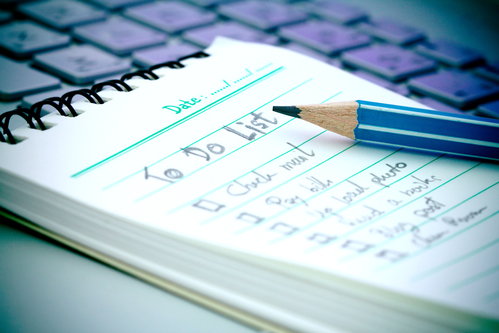 Date: ..../..../....
To Do List
Check mail
Pay bills
Upload photo
Read a books
Blog post
Clean Room